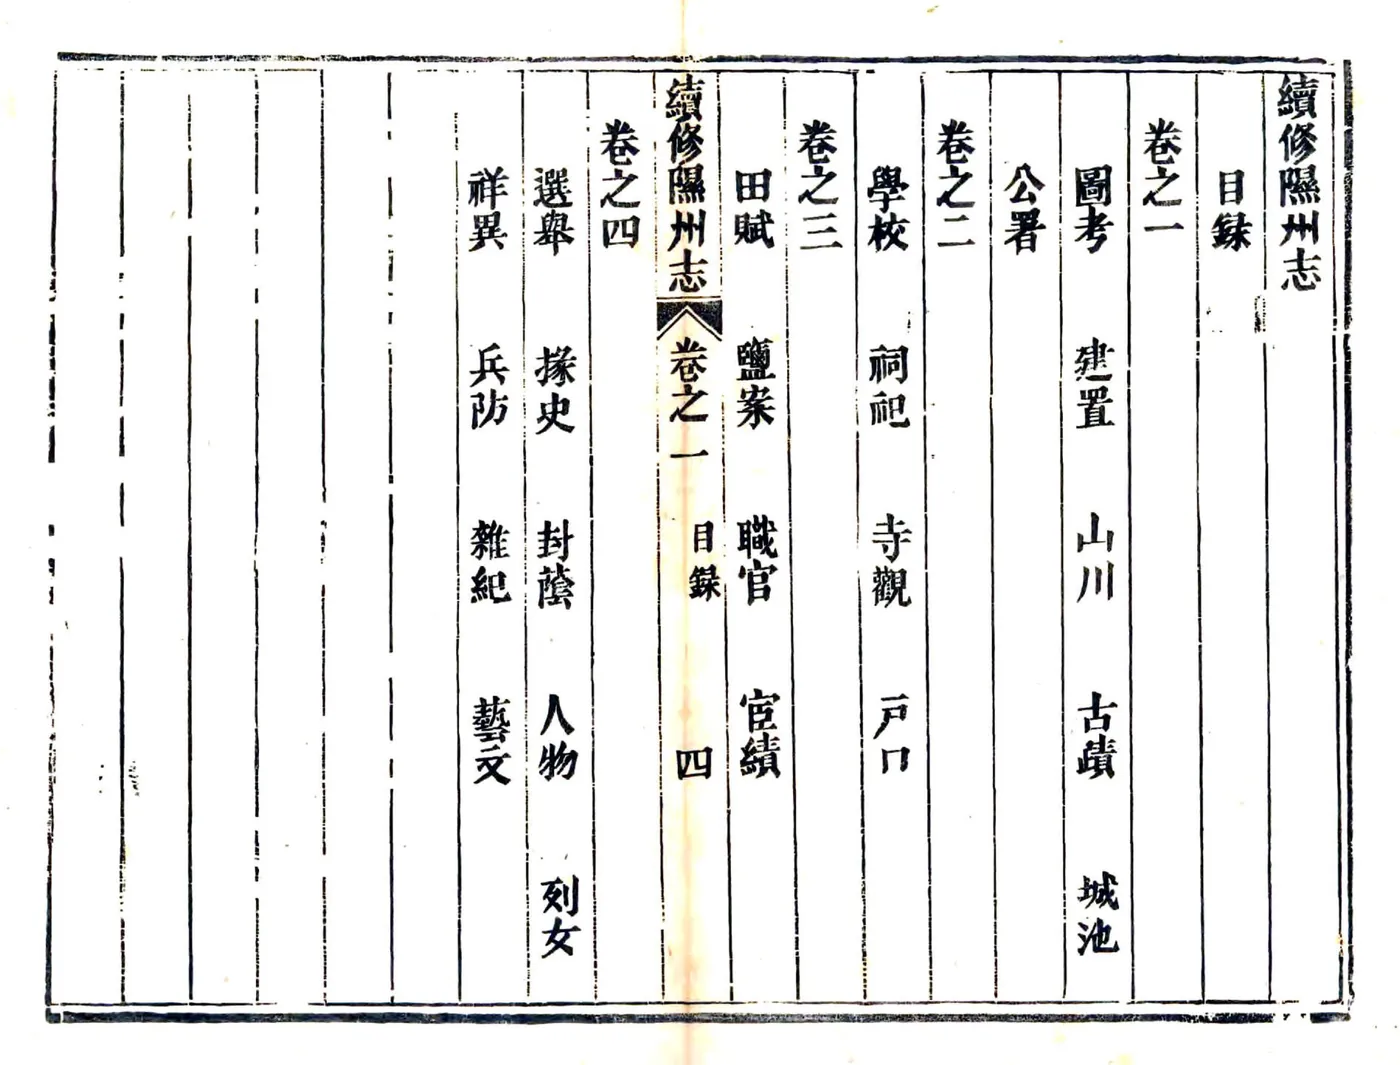 續修隰州志
目録
卷之一
圖考 建置 山川 古蹟 城池
公署
卷之二
學校 祠祀 寺觀 戸口
卷之三
田賦 鹽案 職官 宦績
續修隰州志 卷之一 目録 四
卷之四
選舉 掾史 封蔭 人物 列女
祥異 兵防 雜紀 藝文